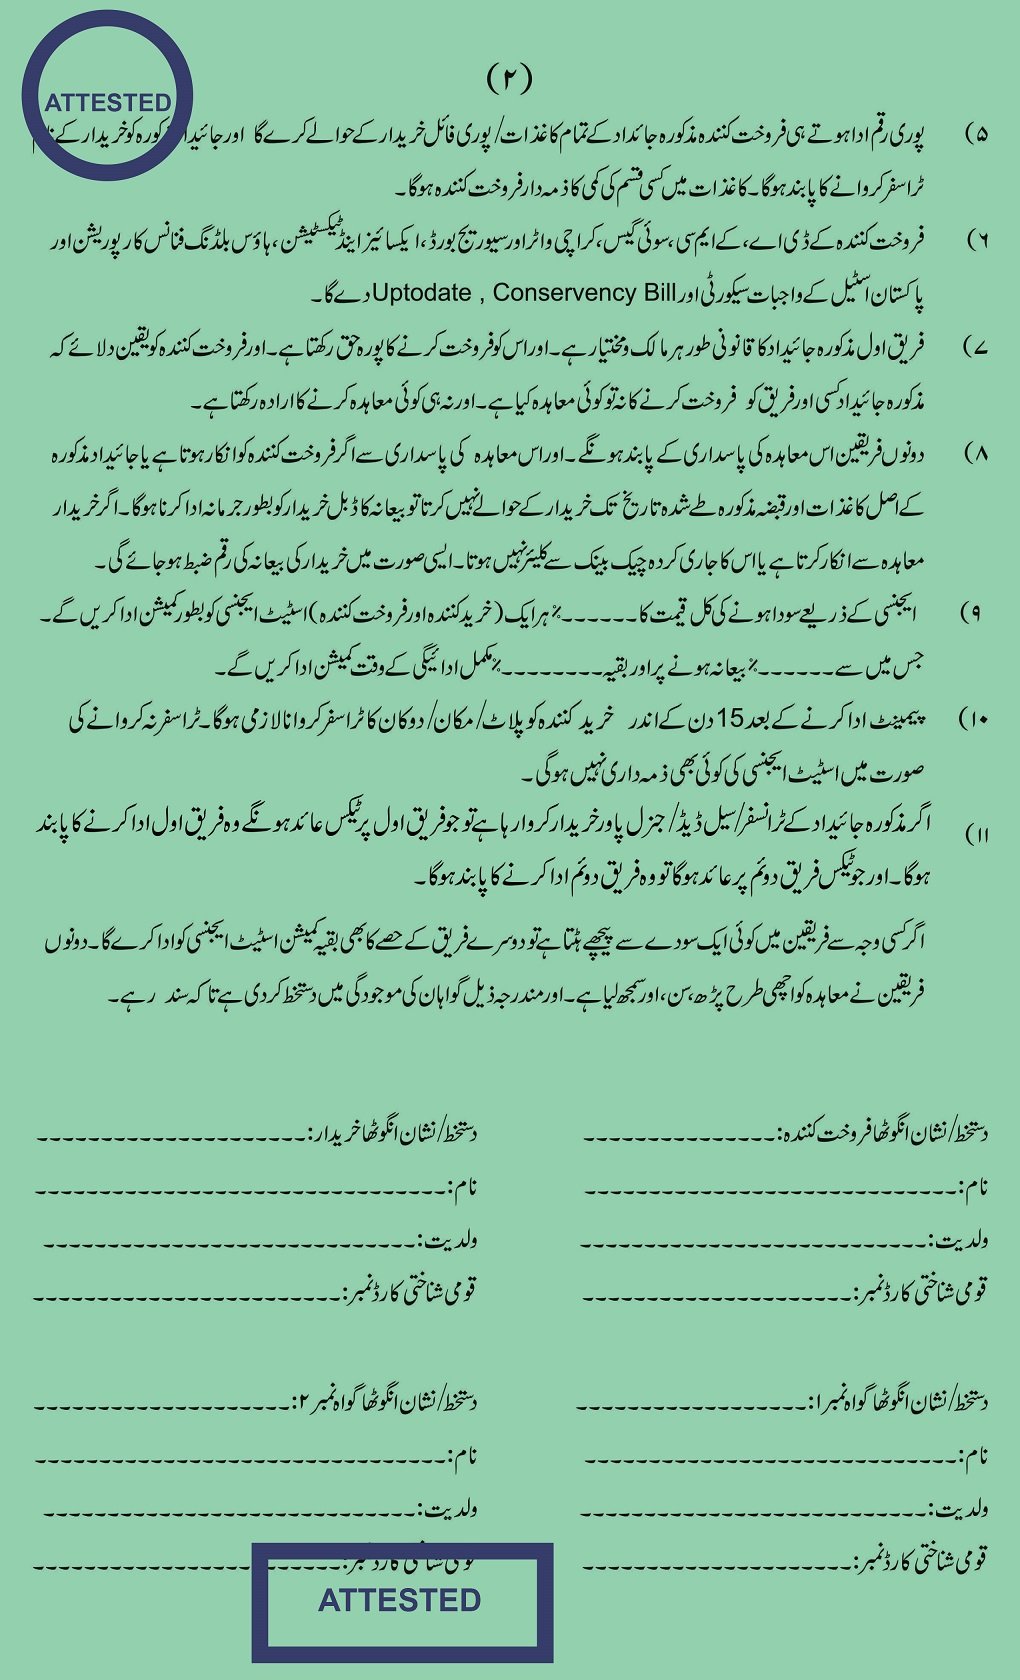 ATTESTED
(۲)
۵) پوری رقم ادا ہوتے ہی فروخت کنندہ مذکورہ جائداد کے تمام کاغذات/پوری فائل خریدار کے حوالے کرے گا اور جائیداد مذکورہ کو خریدار کے نام
ٹراسفر کروانے کا پابند ہوگا۔ کاغذات میں کسی قسم کی کمی کا ذمہ دار فروخت کنندہ ہوگا۔
۶) فروخت کنندہ کے ڈی اے، کے ایم سی، سوئی گیس، کراچی واٹر اور سیوریج بورڈ، ایکسائیز اینڈ ٹیکسٹیشن، ہاؤس بلڈنگ فنانس کارپوریشن اور
پاکستان اسٹیل کے واجبات سیکورٹی اور Uptodate , Conservency Bill دے گا۔
۷) فریق اول مذکورہ جائیداد کا قانونی طور ہر مالک و مختیار ہے۔ اور اس کو فروخت کرنے کا پورہ حق رکھتا ہے۔ اور فروخت کنندہ کو یقین دلائے کہ
مذکورہ جائیداد کسی اور فریق کو فروخت کرنے کا نہ تو کوئی معاہدہ کیا ہے۔ اور نہ ہی کوئی معاہدہ کرنے کا ارادہ رکھتا ہے۔
۸) دونوں فریقین اس معاہدہ کی پاسداری کے پابند ہونگے۔ اور اس معاہدہ کی پاسداری سے اگر فروخت کنندہ کو انکار ہوتا ہے یا جائیداد مذکورہ
کے اصل کاغذات اور قبضہ مذکورہ طے شدہ تاریخ تک خریدار کے حوالے نہیں کرتا تو بیعانہ کا ڈبل خریدار کو بطور جرمانہ ادا کرنا ہوگا۔ اگر خریدار
معاہدہ سے انکار کرتا ہے یا اس کا جاری کردہ چیک بینک سے کلیئر نہیں ہوتا۔ ایسی صورت میں خریدار کی بیعانہ کی رقم ضبط ہو جائے گی۔
۹) ایجنسی کے ذریعے سودا ہونے کی کل قیمت کا ------٪ ہر ایک (خرید کنندہ اور فروخت کنندہ) اسٹیٹ ایجنسی کو بطور کمیشن ادا کریں گے۔
جس میں سے ------٪ بیعانہ ہونے پر اور بقیہ --------٪ مکمل ادائیگی کے وقت کمیشن ادا کریں گے۔
۱۰) پیمینٹ ادا کرنے کے بعد 15 دن کے اندر خرید کنندہ کو پلاٹ/مکان/دوکان کا ٹراسفر کروانا لازمی ہوگا۔ ٹراسفر نہ کروانے کی
صورت میں اسٹیٹ ایجنسی کی کوئی بھی ذمہ داری نہیں ہوگی۔
۱۱) اگر مذکورہ جائیداد کے ٹرانسفر/سیل ڈیڈ/جنرل پاور خریدار کروا رہا ہے تو جو فریق اول پر ٹیکس عائد ہونگے وہ فریق اول ادا کرنے کا پابند
ہوگا۔ اور جو ٹیکس فریق دوئم پر عائد ہوگا تو وہ فریق دوئم ادا کرنے کا پابند ہوگا۔
اگر کسی وجہ سے فریقین میں کوئی ایک سودے سے پیچھے ہٹتا ہے تو دوسرے فریق کے حصے کا بھی بقیہ کمیشن اسٹیٹ ایجنسی کو ادا کرے گا۔ دونوں
فریقین نے معاہدہ کو اچھی طرح پڑھ، سن، اور سمجھ لیا ہے۔ اور مندرجہ ذیل گواہان کی موجودگی میں دستخط کر دی ہے تاکہ سند رہے۔
دستخط/نشان انگوٹھا فروخت کنندہ:--------------- دستخط/نشان انگوٹھا خریدار:---------------------
نام:----------------------------- نام:--------------------------------
ولدیت:--------------------------- ولدیت:-----------------------------
قومی شناختی کارڈ نمبر:--------------------- قومی شناختی کارڈ نمبر:------------------------
دستخط/نشان انگوٹھا گواہ نمبر ۱:------------------ دستخط/نشان انگوٹھا گواہ نمبر ۲:--------------------
نام:----------------------------- نام:--------------------------------
ولدیت:--------------------------- ولدیت:-----------------------------
قومی شناختی کارڈ نمبر:--------------------- قومی شناختی کارڈ نمبر:------------------------
ATTESTED